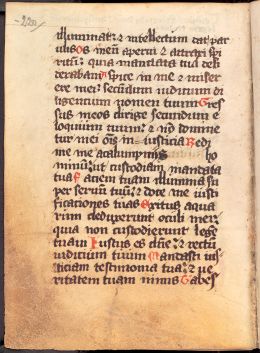 illuminat: et intellectum dat par
uulis Os meū aperui et attraxi spi
ritū: quia mandata tua desi
derabam Aspice in me et miser
ere mei: secūdum iudicium di
ligentium nomen tuum Gres
sus meos dirige secundum e
loquium tuum: et nō domine
tur mei oīs iniusticia Redi
me me a calumpniis ho
minū: ut custodiam mandata
tua Faciem tuam illumina su
per seruū tuū: et doce me iusti
ficaciones tuas Exitus aqua
rum deduxerunt oculi mei:
quia non custodierunt lege
tuam Iustus es dn̄e: et rectū
iudicium tuum Mandasti ius
ticiam testimonia tua: et ue
ritatem tuam nimis Tabes